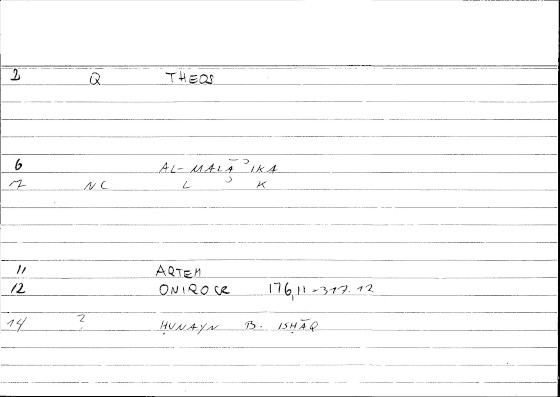 2 Q THEOS
6 AL-MALĀʾIKA
7 NC L ʾ K
11 ARTEM
12 ONIROCR 176,11-317.12
14 ? ḤUNAYN B. ISḤĀQ